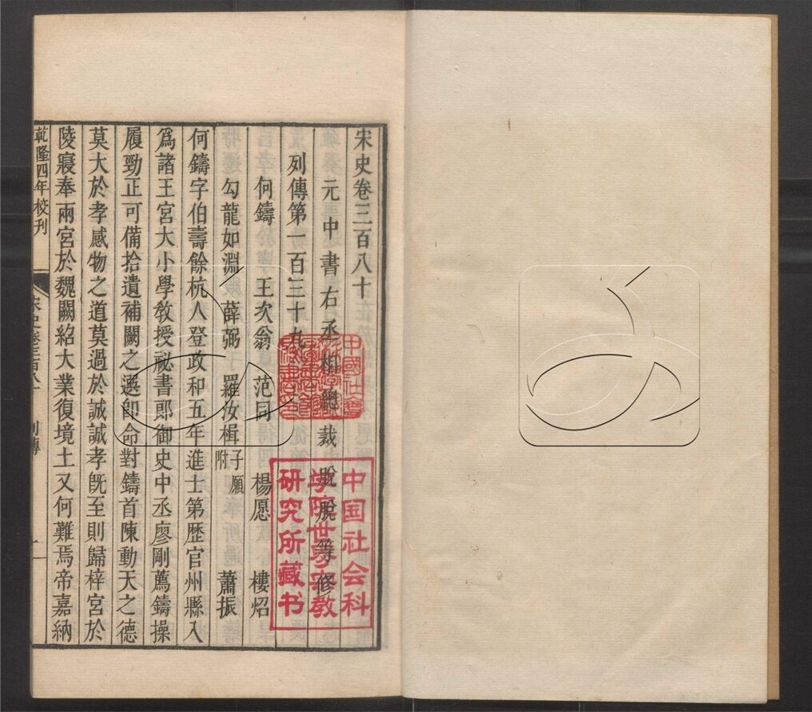 宋史卷三百八十
元中書右丞相總裁脫脫等修
列傳第一百三十九
何鑄 王次翁 范同 楊愿 樓炤
勾龍如淵 薛弼 羅汝楫 子願附 蕭振
何鑄字伯壽餘杭人登政和五年進士第歷官州縣入
爲諸王宮大小學敎授祕書郎御史中丞廖剛薦鑄操
履勁正可備拾遺補闕之選卽命對鑄首陳動天之德
莫大於孝感物之道莫過於誠誠孝旣至則歸梓宮於
陵寢奉兩宮於魏闕紹大業復境土又何難焉帝嘉納
乾隆四年校刊
宋史卷三百八十 列傳 一
中国社会科
学院世界宗教
研究所藏书